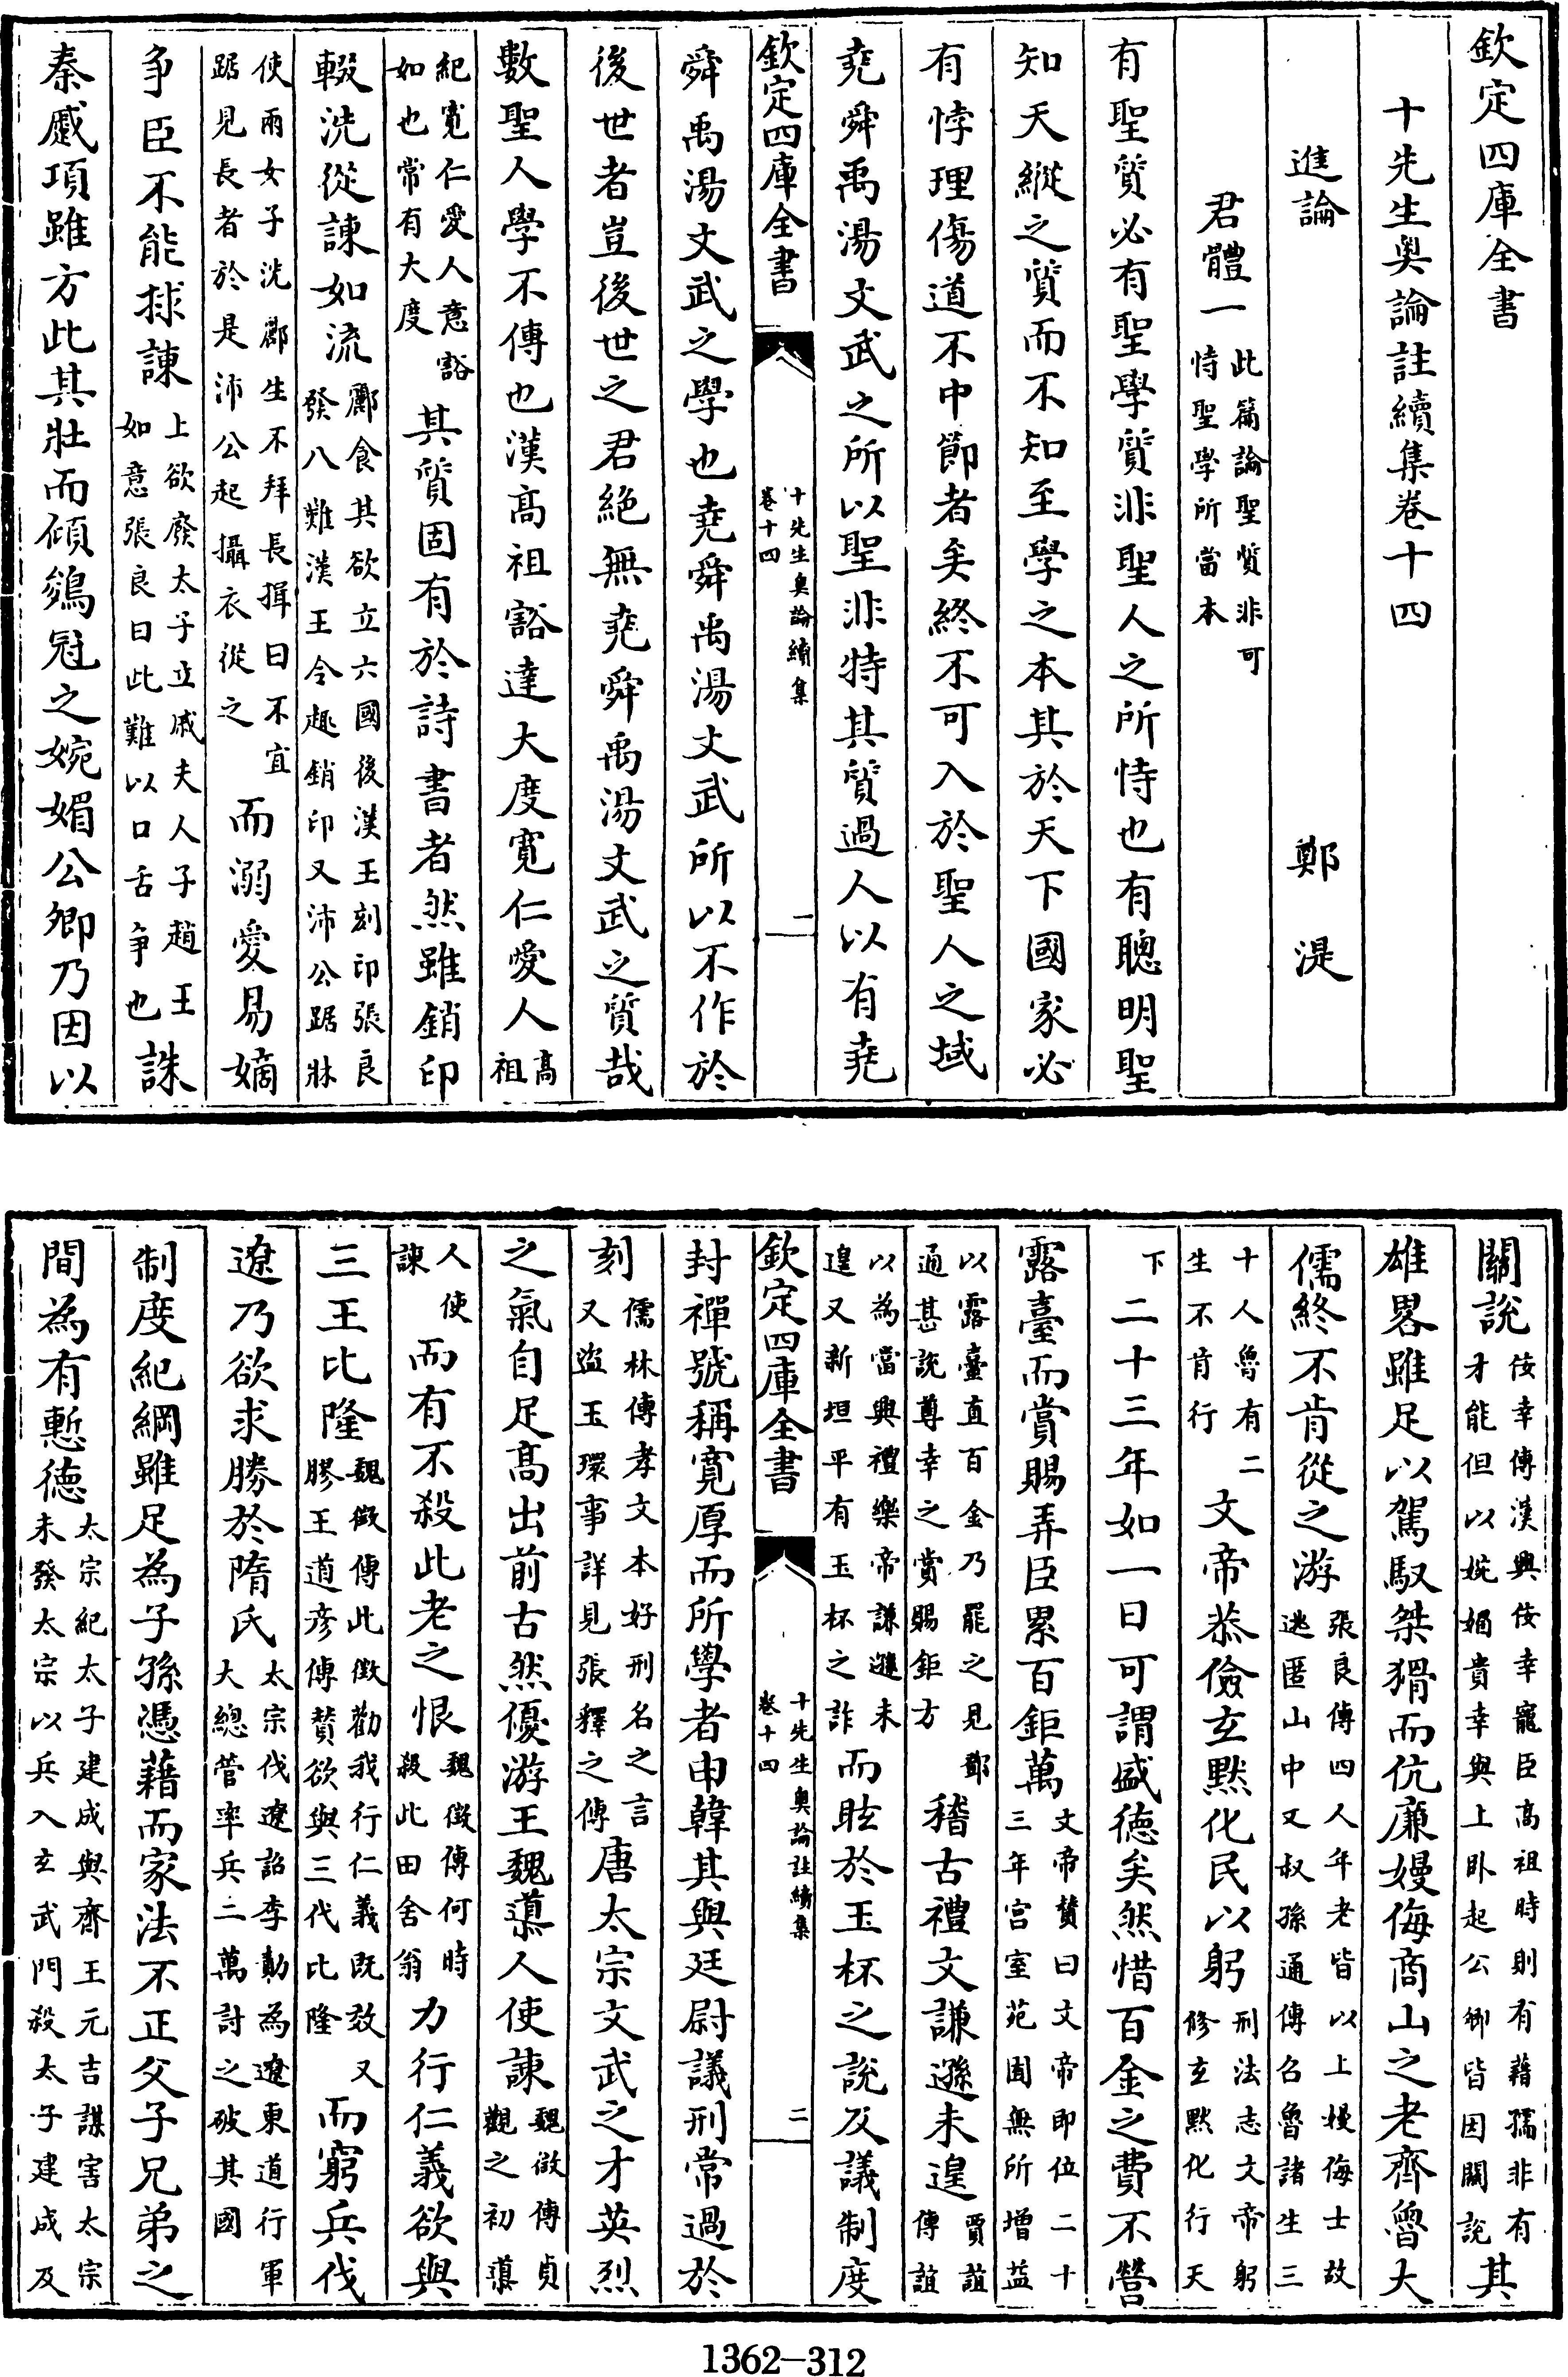 欽定四庫全書
十先生奥論註續集卷十四
進論　鄭湜
君體一此篇論聖質非可恃聖學所當本
有聖質必有聖學質非聖人之所恃也有聰明聖
知天縱之質而不知至學之本其於天下國家必
有悖理傷道不中節者矣終不可入於聖人之域
堯舜禹湯文武之所以聖非特其質過人以有堯
欽定四庫全書　十先生奥論續集卷十四　一
舜禹湯文武之學也堯舜禹湯文武所以不作於
後世者豈後世之君絶無堯舜禹湯文武之質哉
數聖人學不傳也漢髙祖豁達大度寛仁愛人髙祖
紀寛仁愛人意豁如也常有大度其質固有於詩書者然雖銷印
輟洗從諫如流酈食其欲立六國後漢王刻印張良發八難漢王令趣銷印又沛公踞牀
使兩女子洗酈生不拜長揖曰不宜踞見長者於是沛公起攝衣從之而溺愛易嫡
争臣不能捄諫上欲廢太子立戚夫人子趙王如意張良曰此難以口舌争也誅
秦蹙項雖方此其壯而傾鵕冠之婉媚公卿乃因以
關説佞幸傳漢興佞幸寵臣高祖時則有藉孺非有才能但以婉媚貴幸與上卧起公卿皆因關説其
雄畧雖足以駕馭桀猾而伉廉嫚侮商山之老齊魯大
儒終不肯從之游張良傳四人年老皆以上嫚侮士故逃匿山中又叔孫通傳召魯諸生三
十人魯有二生不肯行文帝恭儉玄黙化民以躬刑法志文帝躬修玄黙化行天
下二十三年如一日可謂盛德矣然惜百金之費不營
露臺而賞賜弄臣累百鉅萬文帝贊曰文帝即位二十三年宫室苑囿無所增益
以露臺直百金乃罷之見鄧通甚説尊幸之賞賜鉅方稽古禮文謙遜未遑賈誼傳誼
以為當興禮樂帝謙遜未遑又新垣平有玉杯之詐而眩於玉杯之説及議制度
欽定四庫全書　十先生奥論註續集卷十四　二
封禪號稱寛厚而所學者申韓其與廷尉議刑常過於
刻儒林傳孝文本好刑名之言又盗玉環事詳見張釋之傳唐太宗文武之才英烈
之氣自足髙出前古然優游王魏導人使諫魏徴傳貞觀之初導
人使諫而有不殺此老之恨魏徴傳何時殺此田舍翁力行仁義欲與
三王比隆魏徴傳此徴勸我行仁義既效又膠王道彦傳贊欲與三代比隆而窮兵伐
遼乃欲求勝於隋氏太宗伐遼詔李勣為遼東道行軍大總管率兵二萬討之破其國
制度紀綱雖足為子孫憑藉而家法不正父子兄弟之
間為有慙德太宗紀太子建成與齊王元吉謀害太宗未發太宗以兵入玄武門殺太子建成及
1362—312